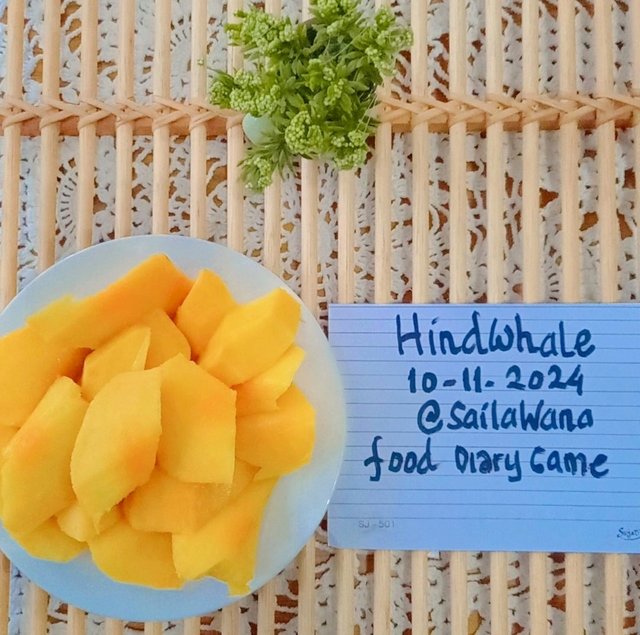 HindWhale
10-11-2024
@SailaWana
food Diary Game
SJ-501